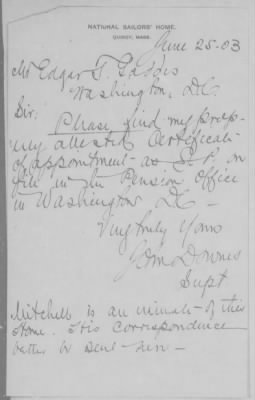 NATIONAL SAILORS' HOME.
QUINCY, MASS.
June 25-03
Mr Edgar T. Gaddis
Washington, DC.
Sir:
Please find my prop-
erly attested Certificate
of appointment as J. P. on
file in the Pension Office
in Washington DC —
Very truly Yours
Downes
Supt
Mitchell is an inmate of this
Home. His Correspondence
better be sent